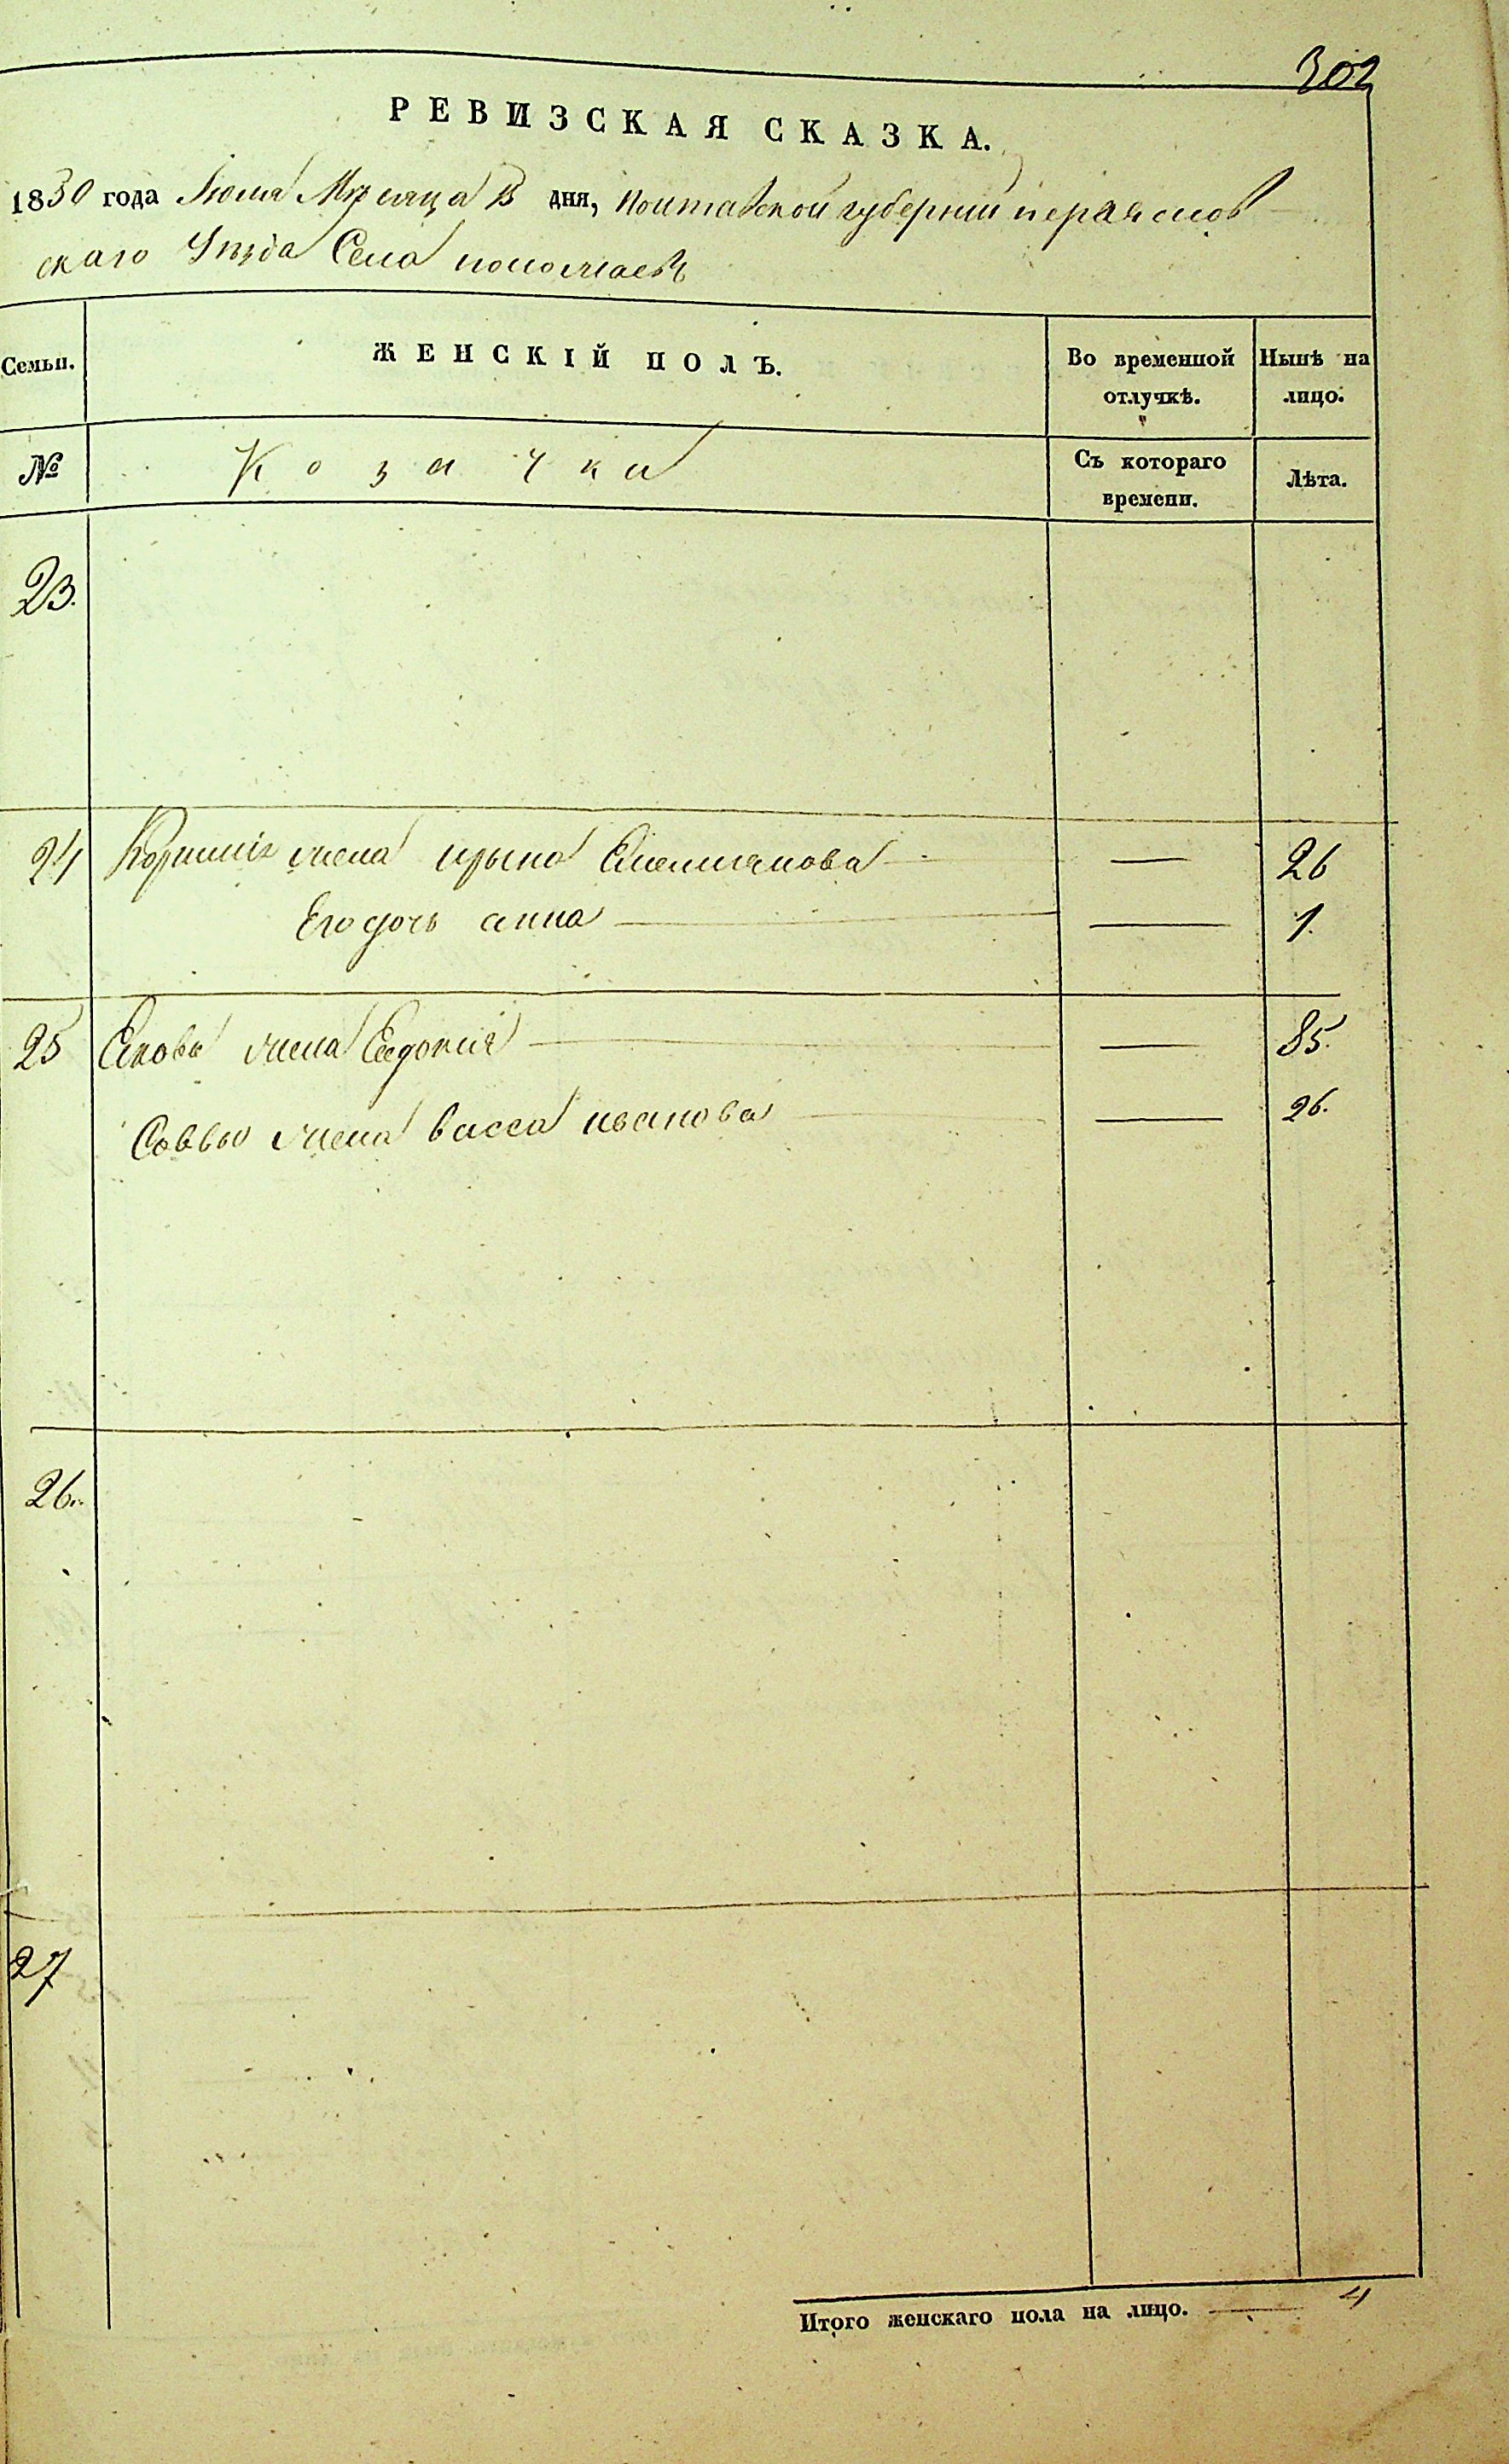 302
РЕВИЗСКАЯ СКАЗКА.
1830 года Июля Мѣсяца 13 дня, полтавской губернии пераяслов
скаго уѣзда Села
Семьи.
ЖЕНСКІЙ ПОЛЪ.
Во временной отлучкѣ.
Нынѣ на лицо.
№
Козачки
Съ котораго времени.
Лѣта.
23.
24 жена ирына Емельянова — 26
Его дочь анна — 1.
25 жена Евдокия — 85.
Саввы жена васса иванова — 26.
26.
27
Итого женскаго пола на лицо. — 4